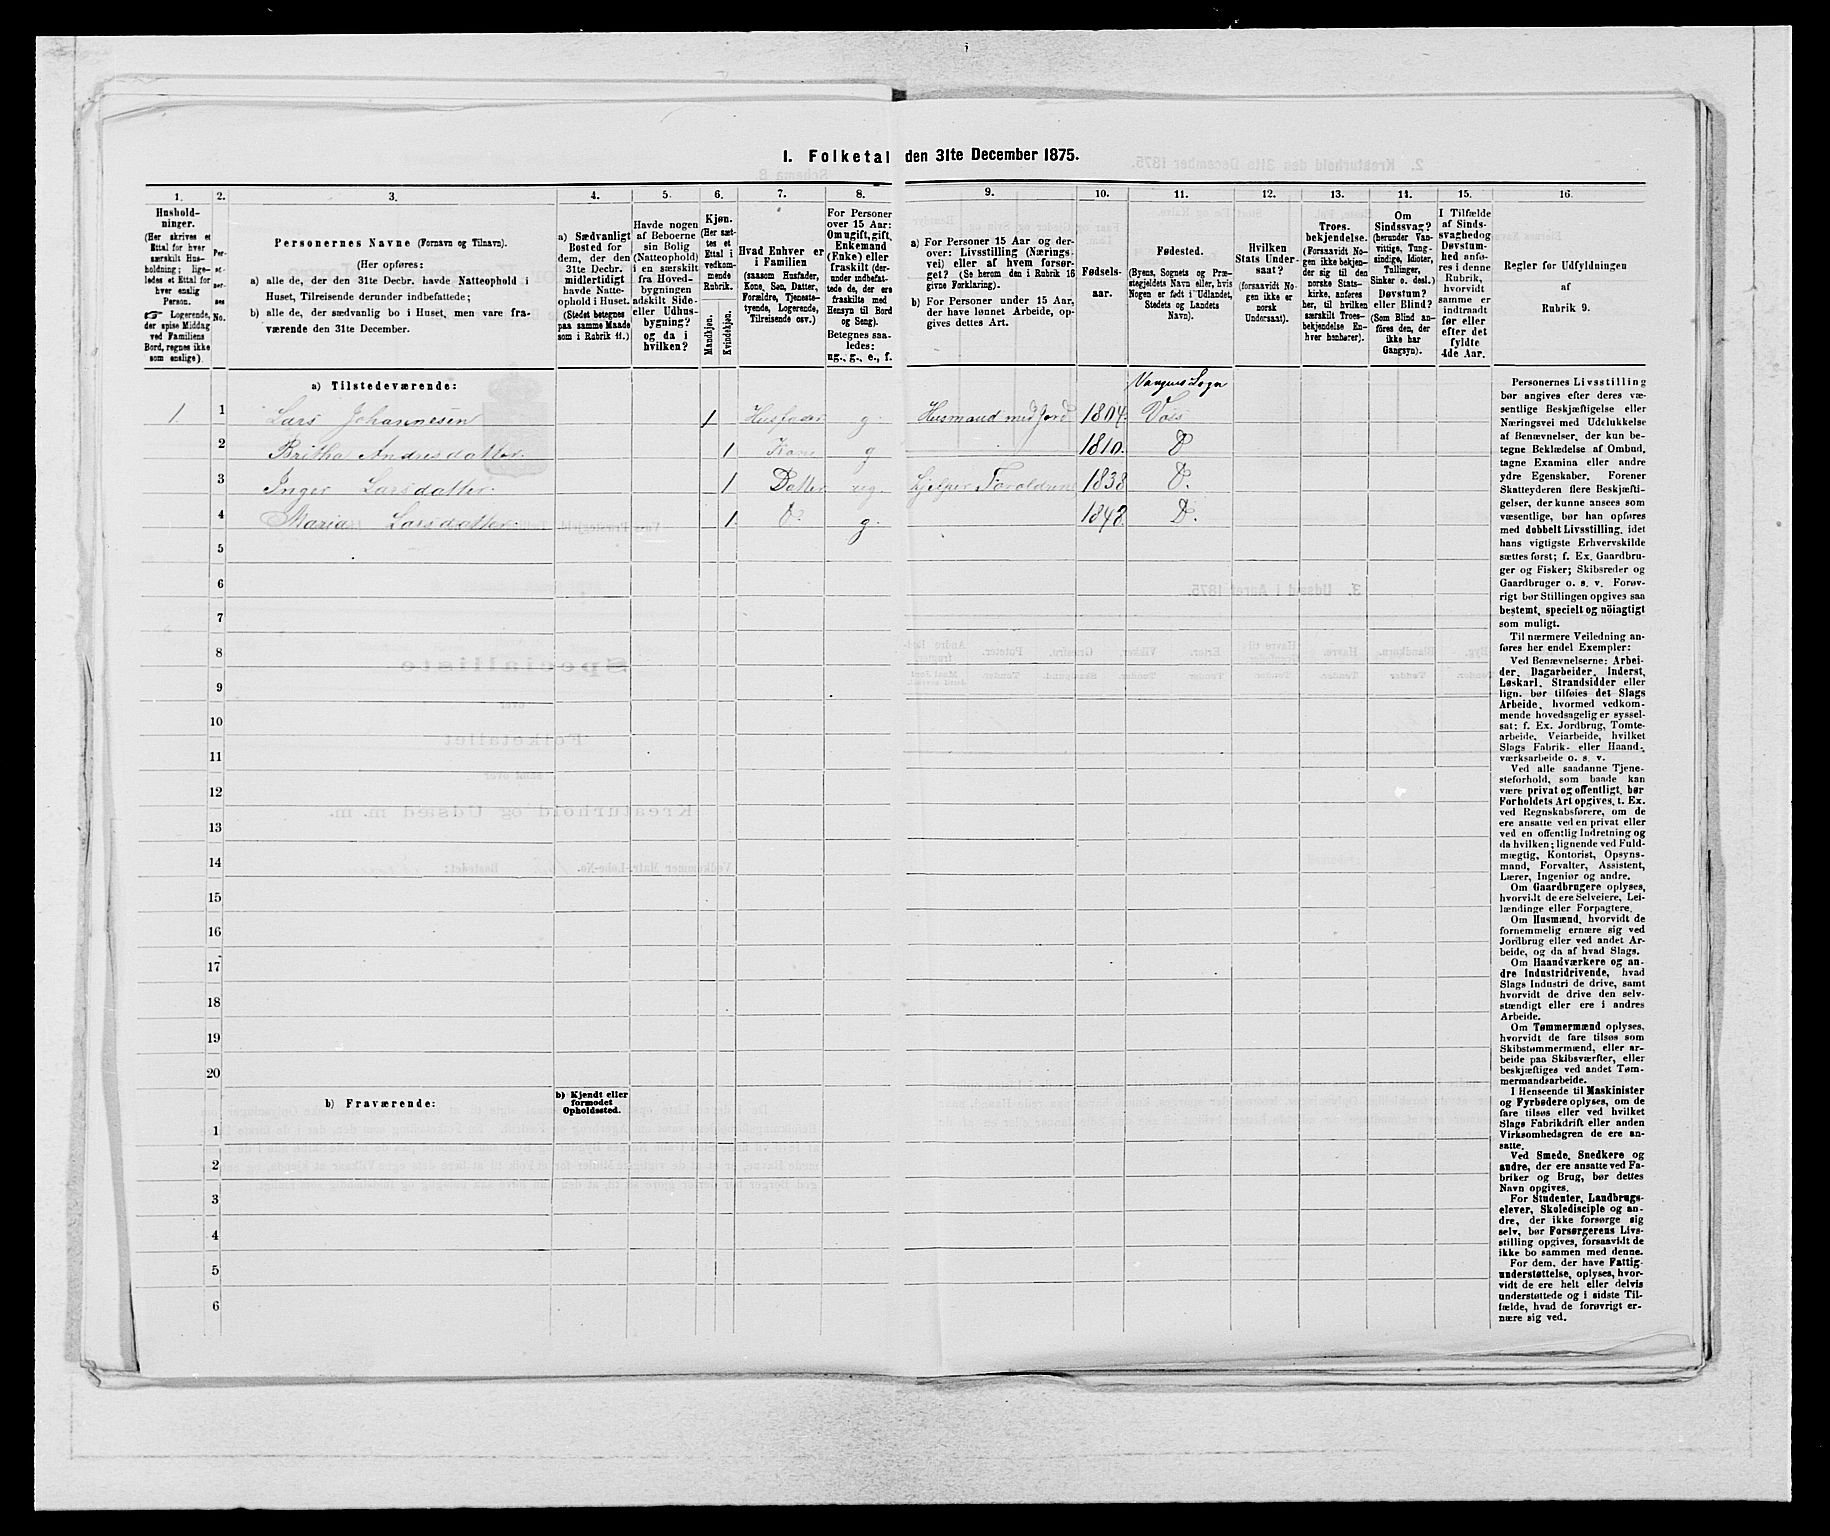 1. Folketal den 31te December 1875.
1.
Husholdninger.
(Her skrives et Ettal for hver særskilt Husholdning; ligeledes et Ettal for hver enslig Person.
☞ Logerende, der spise Middag ved Familiens Bord, regnes ikke som enslige).
2.
Personernes No.
3.
Personernes Navne (Fornavn og Tilnavn).
(Her opføres:
a) alle de, der den 31te Decbr. havde Natteophold i Huset, Tilreisende derunder indbefattede;
b) alle de, der sædvanlig bo i Huset, men vare fraværende den 31te December.
4.
a) Sædvanligt Bosted for dem, der den 31te Decbr. midlertidigt havde Natteophold i Huset.
(Stedet betegnes paa samme Maade som i Rubrik 11.)
5.
Havde nogen af Beboerne sin Bolig (Natteophold) i en særskilt fra Hovedbygningen adskilt Side- eller Udhusbygning? og da i hvilken?
6.
Kjøn.
(Her sættes et Ettal i vedkommende Rubrik.
Mandkjøn.
Kvindekjøn.
7.
Hvad Enhver er i Familien
(saasom Husfader, Kone, Søn, Datter, Forældre, Tjenestetyende, Logerende, Tilreisende osv.)
8.
For Personer over 15 Aar: Om ugift, gift, Enkemand (Enke) eller fraskilt (derunder indbefattede de, der ere fraskilte med Hensyn til Bord og Seng).
Betegnes saaledes:
ug., g., e., f.
9.
a) For Personer 15 Aar og derover: Livsstilling (Næringsvei) eller af hvem forsørget? (Se herom den i Rubrik 16 givne Forklaring).
b) For Personer under 15 Aar, der have lønnet Arbeide, opgives dettes Art.
10.
Fødselsaar.
11.
Fødested.
(Byens, Sognets og Præstegjeldets Navn eller, hvis Nogen er født i Udlandet, Stedets og Landets Navn).
12.
Hvilken Stats Undersaat?
(forsaavidt Nogen ikke er norsk Undersaat).
13.
Troesbekjendelse.
(Forsaavidt Nogen ikke bekjender sig til den norske Statskirke, anføres her, til hvilken særskilt Troesbekjendelse Enhver henhører).
14.
Om Sindssvag?
(herunder Vanvittige, Tungsindige, Idioter, Tullinger, Sinker o. desl.)
Døvstum? eller Blind?
(Som Blind anføres den, der ikke har Gangsyn).
15.
I Tilfælde af Sindssvaghed og Døvstumhed anføres i denne Rubrik, hvorvidt samme er indtraadt før eller efter det fyldte 4de Aar.
16.
Regler for Udfyldningen
af
Rubrik 9.
a) Tilstedeværende:
Vangens Sogn
1 1 Lars Johannesen 1 Husfader g Husmand med Jord 1804. Vois
2 Britha Andersdatter. 1 Kone g 1810. D
3 Inger Larsdatter. 1 Datter ug. hjelper Foreldrene 1838 D.
4 Maria Larsdatter. 1 D. g. 1848. D.
5
6
7
8
9
10
11
12
13
14
15
16
17
18
19
20
b) Fraværende:
b) Kjendt eller formodet Opholdssted.
1
2
3
4
5
6
Personernes Livsstilling
bør angives efter deres væ-
sentlige Beskjæftigelse eller
Næringsvei med Udelukkelse
af Benævnelser, der kun be-
tegne Beklædelse af Ombud,
tagne Examina eller andre
ydre Egenskaber. Forener
Skatteyderen flere Beskjæfti-
gelser, der kunne ansees som
væsentlige, bør han opføres
med dobbelt Livsstilling, idet
hans vigtigste Erhvervskilde
sættes først; f. Ex. Gaardbru-
ger og Fisker; Skibsreder og
Gaardbruger o. s. v. Forøv-
rigt bør Stillingen opgives saa
bestemt, specielt og nöiagtigt
som muligt.
Til nærmere Veiledning an-
føres her endel Exempler:
Ved Benævnelserne: Arbei-
der, Dagarbeider, Inderst,
Løskarl, Strandsidder eller
lign. bør tilføies det Slags
Arbeide, hvormed vedkom-
mende hovedsagelig er syssel-
sat; f. Ex. Jordbrug, Tomte-
arbeide, Veiarbeide, hvilket
Slags Fabrik- eller Haand-
værksarbeide o. s. v.
Ved alle saadanne Tjene-
steforhold, som baade kan
være privat og offentligt, bør
Forholdets Art opgives, t. Ex.
ved Regnskabsførere, om de
ere ansatte ved en privat eller
ved en offentlig Indretning og
da hvilken; lignende ved Fuld-
mægtig, Kontorist, Opsyns-
mand, Forvalter, Assistent,
Lærer, Ingeniør og andre.
Om Gaardbrugere oplyses,
hvorvidt de ere Selveiere, Lei-
lændinge eller Forpagtere.
Om Husmænd, hvorvidt de
fornemmelig ernære sig ved
Jordbrug eller ved andet Ar-
beide, og da af hvad Slags.
Om Haandværkere og an-
dre Industridrivende, hvad
Slags Industri de drive, samt
hvorvidt de drive den selv-
stændigt eller ere i andres
Arbeide.
Om Tømmermænd oplyses,
hvorvidt de fare tilsøs som
Skibstømmermænd, eller ar-
beide paa Skibsværfter, eller
beskjæftiges ved andet Tøm-
mermandsarbeide.
I Henseende til Maskinister
og Fyrbødere oplyses, om de
fare tilsøs eller ved hvilket
Slags Fabrikdrift eller anden
Virksomhedsgren de ere an-
satte.
Ved Smede, Snedkere og
andre, der ere ansatte ved Fa-
briker og Brug, bør dettes
Navn opgives.
For Studenter, Landbrugs-
elever, Skoledisciple og an-
dre, der ikke forsørge sig
selv, bør Forsørgerens Livs-
stilling opgives, forsaavidt de
ikke bo sammen med denne.
For dem, der have Fattig-
understøttelse, oplyses, hvor-
vidt de ere helt eller delvis
understøttede og i sidste Til-
fælde, hvad de forøvrigt er-
nære sig ved.